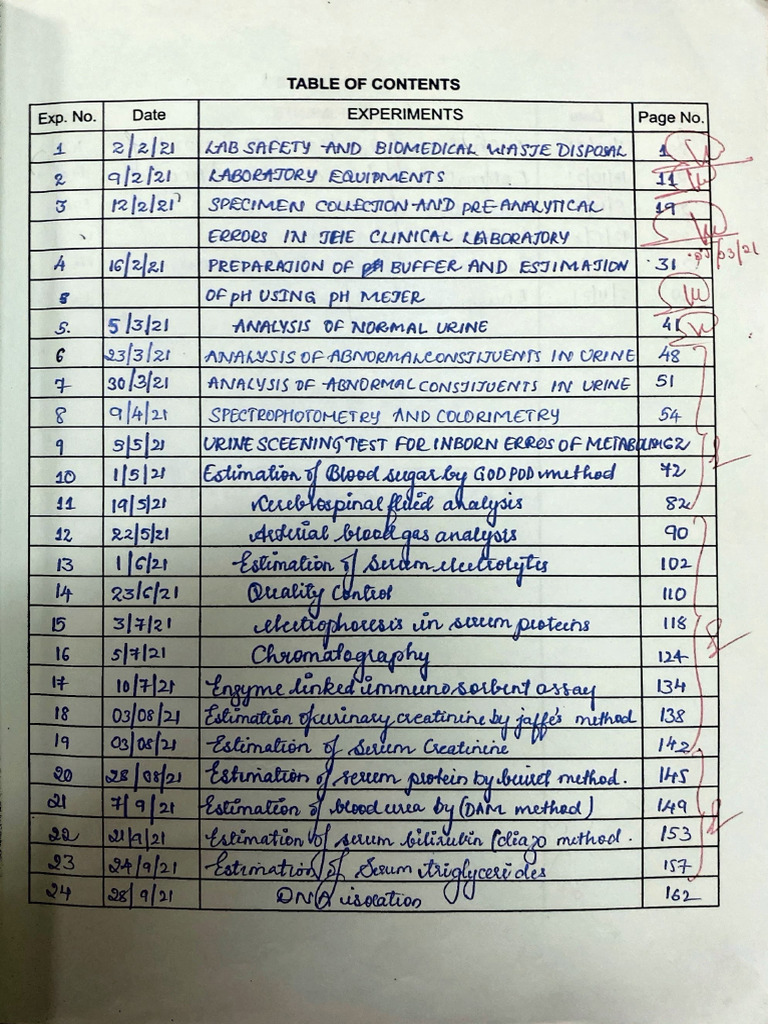 TABLE OF CONTENTS
Exp. No. Date EXPERIMENTS Page No.
1 2/2/21 LAB SAFETY AND BIOMEDICAL WASTE DISPOSAL 1
2 9/2/21 LABORATORY EQUIPMENTS 11
3 12/2/21 SPECIMEN COLLECTION AND PRE-ANALYTICAL 19
ERRORS IN THE CLINICAL LABORATORY
4 16/2/21 PREPARATION OF pH BUFFER AND ESTIMATION 31
OF pH USING pH METER
5. 5/3/21 ANALYSIS OF NORMAL URINE 41
6 23/3/21 ANALYSIS OF ABNORMAL CONSTITUENTS IN URINE 48
7 30/3/21 ANALYSIS OF ABNORMAL CONSTITUENTS IN URINE 51
8 9/4/21 SPECTROPHOTOMETRY AND COLORIMETRY 54
9 5/5/21 URINE SCEENING TEST FOR INBORN ERROS OF METABOLISM 62
10 1/5/21 Estimation of Blood sugar by GOD POD method 72
11 19/5/21 Cerebrospinal fluid analysis 82
12 22/5/21 Arterial blood gas analysis 90
13 1/6/21 Estimation of serum electrolytes 102
14 23/6/21 Quality Control 110
15 3/7/21 electrophoresis in serum proteins 118
16 5/7/21 Chromatography 124
17 10/7/21 Enzyme linked immuno sorbent assay 134
18 03/08/21 Estimation of urinary creatinine by jaffe's method 138
19 03/08/21 Estimation of Serum Creatinine 142
20 28/08/21 Estimation of serum protein by biuret method. 145
21 7/9/21 Estimation of blood urea by (DAM method) 149
22 21/9/21 Estimation of serum bilirubin (diazo method. 153
23 24/9/21 Estimation of Serum triglycerides 157
24 28/9/21 DNA isolation 162